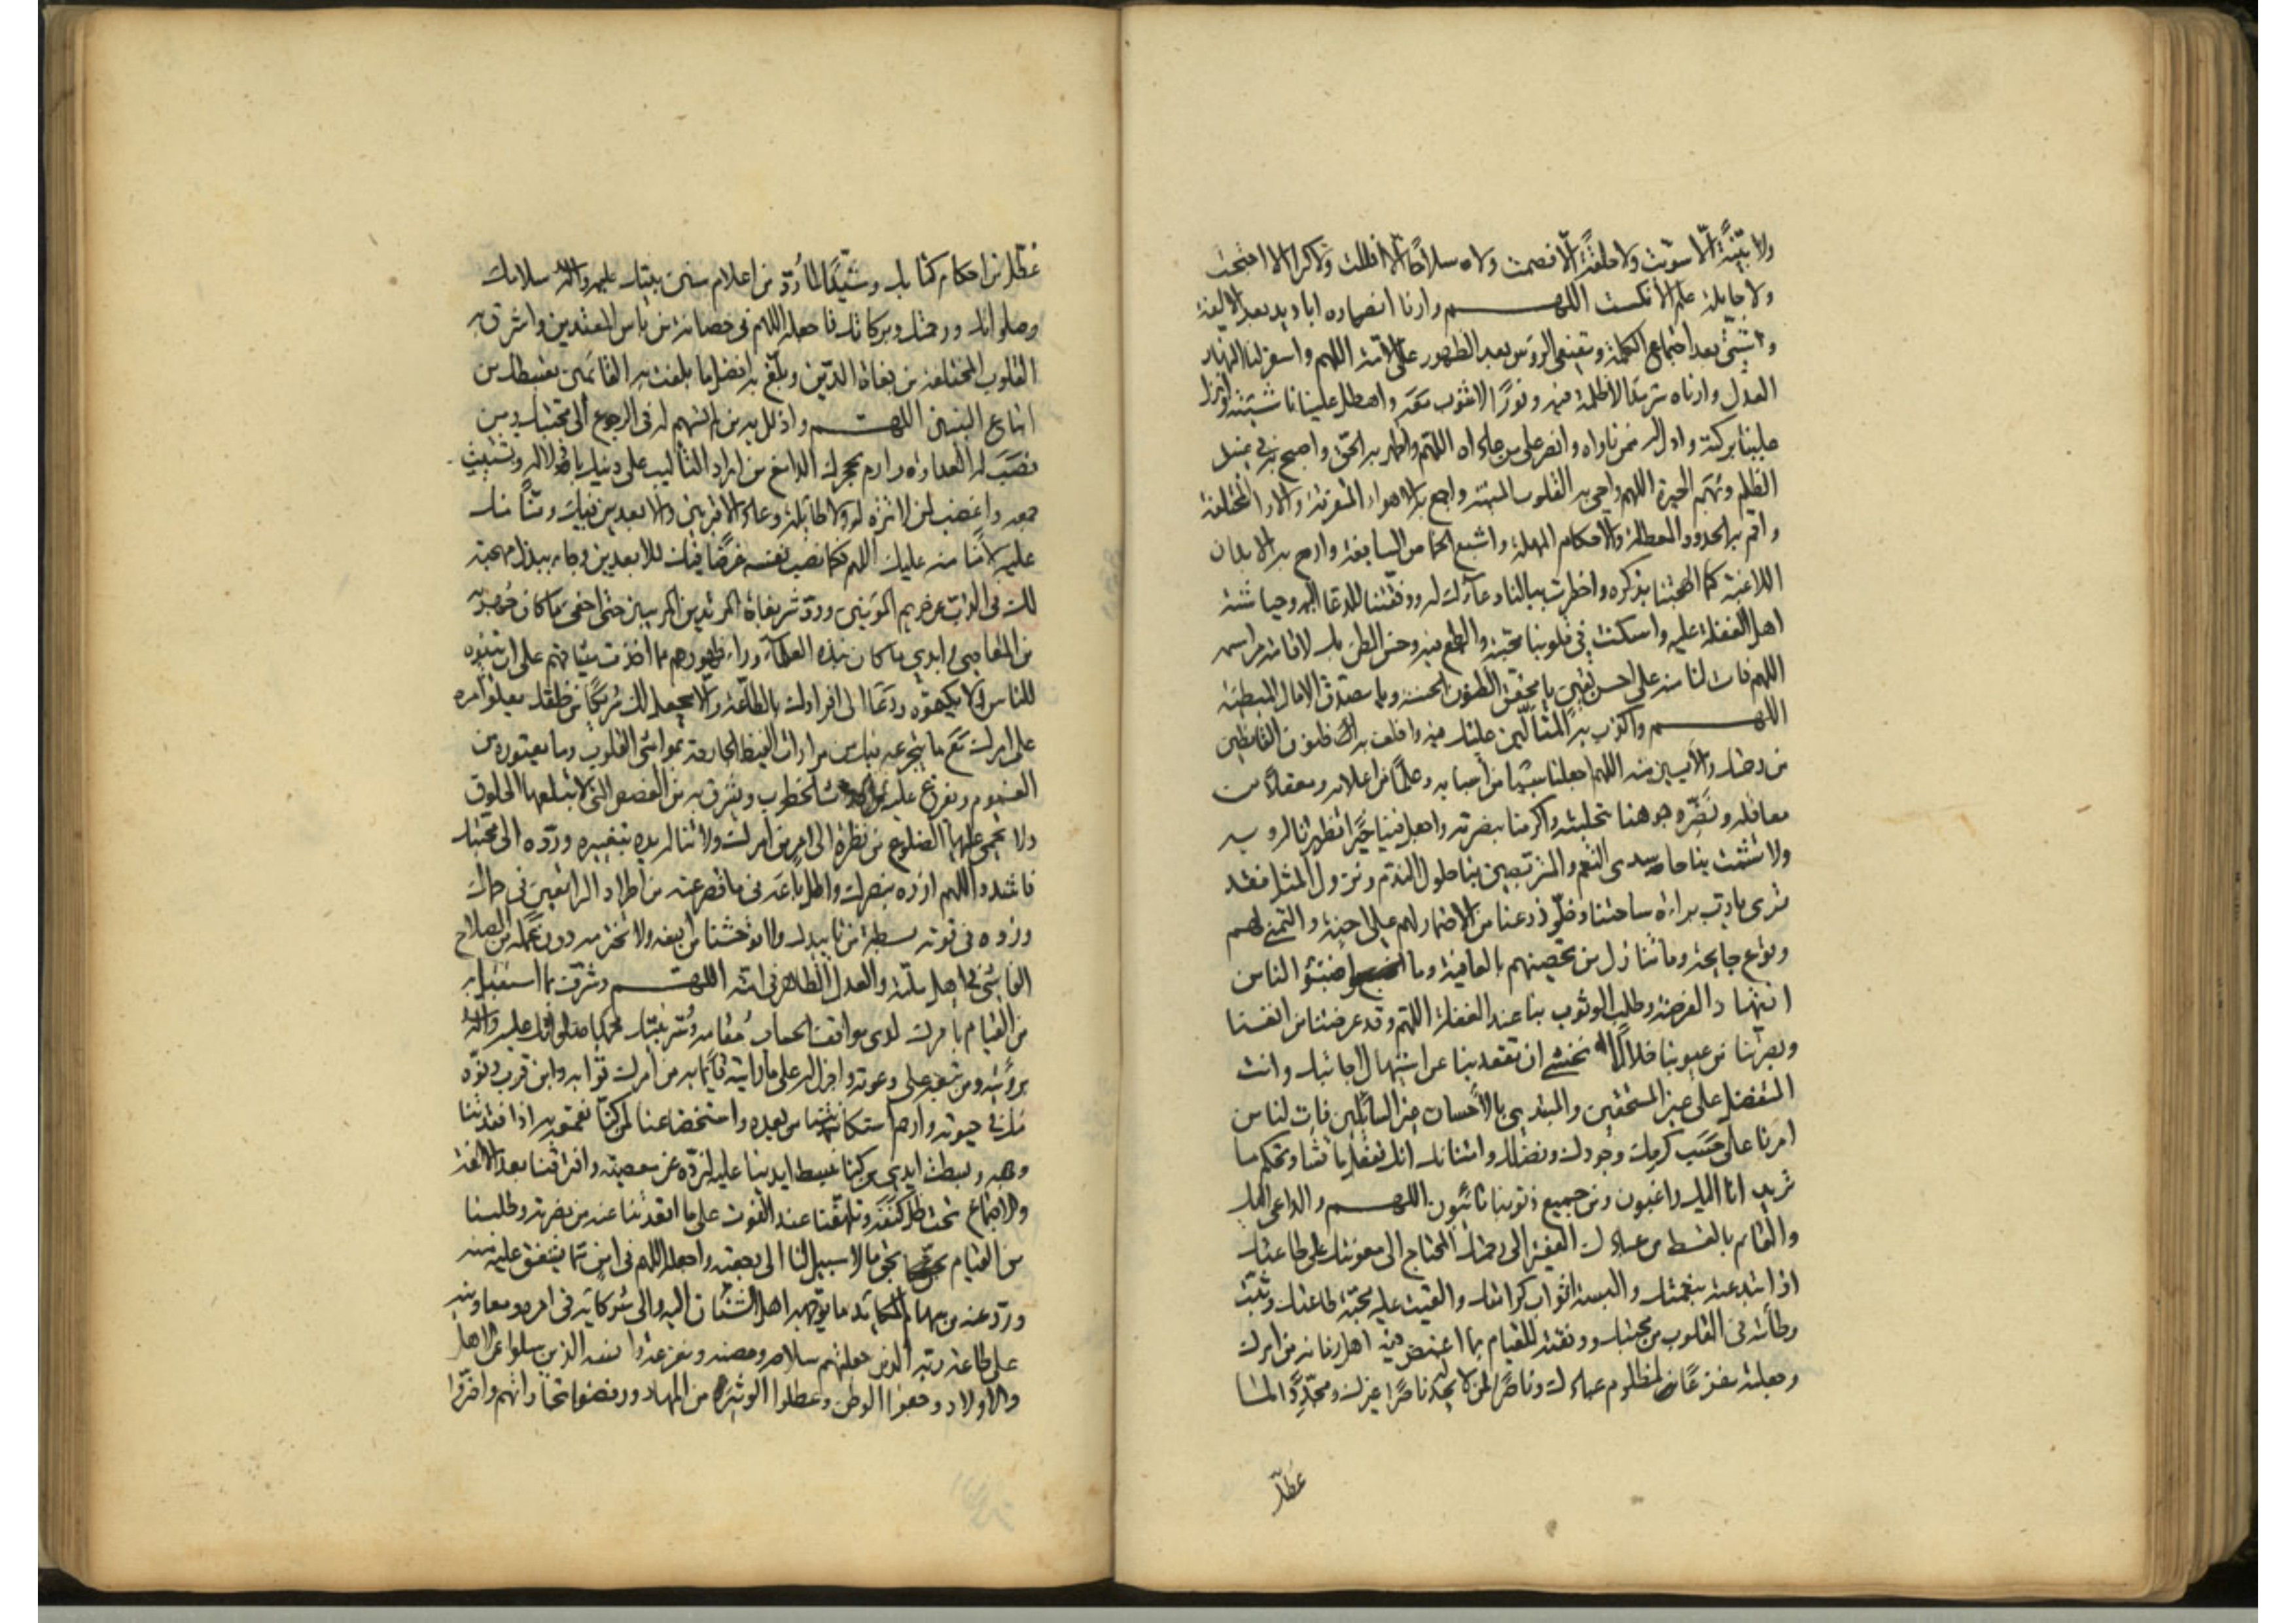 ولا بنية الا سويت ولا حلقة الا فصمت ولا سلاحا الا افللت ولا كراعا الا اجتحت
ولا حاملة علم الا نكست اللهم وارنا انصاره اباديد بعد الالفة
وشتى بعد اجتماع الكلمة ومقنعي الرؤس بعد الظهور على الامة اللهم واسفر لنا نهار
العدل وارناه سرمدا لا ظلمة فيه ونورا لا شوب معه واهطل علينا ناشئته وانزل
علينا بركته وادل له ممن ناواه وانصره على من عاداه اللهم واظهر به الحق واصبح به في غسق
الظلم وبهم الحيرة اللهم واحي به القلوب الميتة واجمع به الاهواء المتفرقة والاراء المختلفة
واقم به الحدود المعطلة والاحكام المهملة واشبع به الخماص الساغبة وارح به الابدان
اللاغبة كما الهجتنا بذكره واخطرت ببالنا دعاءك له ووفقتنا للدعاء اليه وحياشة
اهل الغفلة عليه واسكنت في قلوبنا محبته والطمع فيه وحسن الظن بك لاقامة مراسمه
اللهم فات لنا منه على احسن يقين يا محقق الظنون الحسنة ويا مصدق الامال المبطئة
اللهم واكذب به المتالين عليك فيه واخلف به ظنون القانطين
من رحمتك والايسين منه اللهم اجعلنا سببا من اسبابه وعلما من اعلامه ومعقلا من
معاقله ونضر وجوهنا بتحليته واكرمنا بنصرته واجعل فينا خيرا تظهرنا له وبه
ولا تشمت بنا حاسدي النعم والمتربصين بنا حلول الندم ونزول المثل فقد
ترى يا رب براءة ساحتنا وخلو ذرعنا من الاضمار لهم على احنة والتمني لهم
وقوع جايحة وما تنازل من تحصينهم بالعافية وما اضبئوا لنا من
انتهاز الفرصة وطلب الوثوب بنا عند الغفلة اللهم وقد عرفتنا من انفسنا
وبصرتنا من عيوبنا خلالا نخشى ان تقعد بنا عن استيهال اجابتك وانت
المتفضل على غير المستحقين والمبتدي بالاحسان غير السائلين فات لنا من
امرنا على حسب كرمك وجودك وفضلك وامتنانك انك تفعل ما تشاء وتحكم ما
تريد انا اليك راغبون ومن جميع ذنوبنا تائبون اللهم والداعي اليك
والقائم بالقسط من عبادك الفقير الى رحمتك المحتاج الى معونتك على طاعتك
اذ ابتدءته بنعمتك والبسته اثواب كرامتك والقيت عليه محبة طاعتك وثبت
وطأته في القلوب من محبتك ووفقته للقيام بما اغمض فيه اهل زمانه من امرك
وجعلته مفزعا لمظلوم عبادك وناصرا لمن لا يجد ناصرا غيرك ومجددا لما
عطل
عطل من احكام كتابك ومشيدا لما رد من اعلام سنن نبيك عليه واله سلامك
وصلواتك ورحمتك وبركاتك فاجعله اللهم في حصانة من باس المعتدين واشرق به
القلوب المختلفة من بغاة الدين وبلغ به افضل ما بلغت به القائمين بقسطك من
اتباع النبيين اللهم واذلل به من لم تسهم له في الرجوع الى محبتك ومن
نصب له العداوة وارم بحجرك الدامغ من اراد التاليب على دينك باذلاله وتشتيت
جمعه واغضب لمن لا ترة له ولا طائلة وعادى الاقربين والابعدين فيك منا منك
عليه لا منا منه عليك اللهم فكما نصب نفسه غرضا فيك للابعدين وجاد ببذل مهجته
لك في الذب عن حريم المؤمنين ورد شر بغاة المرتدين المريبين حتى اخفي ما كان جهر به
من المعاصي وابدي ما كان نبذه العلماء وراء ظهورهم مما اخذت ميثاقهم على ان يبينوه
للناس ولا يكتموه ودعا الى افرادك بالطاعة والا يجعل لك شريكا من خلقك يعلو امره
على امرك مع ما يتجرعه فيك من مرارات الغيظ الجارحة بمواسي القلوب وما يعتوره من
الغموم ويفرغ عليه من احداث الخطوب ويشرق به من الغصص التي لا تبتلعها الحلوق
ولا تحمى عليها الضلوع من نظرة الى امر من امرك ولا تناله يده بتغييره ورده الى محبتك
فاشدد اللهم ازره بنصرك واطل باعه في ما قصر عنه من اطراد الراتعين في حماك
وزده في قوته بسطة من تاييدك ولا توحشنا من انسه ولا تخترمه دون امله من الصلاح
الفاشي في اهل ملته والعدل الظاهر في امته اللهم وشرف بما استقبل به
من القيام بامرك لدى مواقف الحساب مقامه وسر نبيك محمدا صلواتك عليه واله
برؤيته ومن تبعه على دعوته واجزل له على ما رايته قائما به من امرك ثوابه وابن قرب دنوه
منك في حيوته وارحم استكانتنا من بعده واستخذاءنا لمن كنا نقمعه به اذا فقدتنا
وجهه وبسطت ايدي من كنا نبسط ايدينا عليه لنرده عن معصيته وافتراقنا بعد الالفة
والاجتماع تحت ظل كنفه وتلهفنا عند الفوت على ما اقعدتنا عنه من نصرته وطلبنا
من القيام بحق ما لا سبيل لنا الى رجعته واجعله اللهم في امن مما يشفق عليه منه
ورد عنه من سهام المكائد ما يوجهه اهل الشنان اليه والى شركائه في امره ومعاونيه
على طاعة ربه الذين جعلتهم سلاحه وحصنه ومفزعه وانسه الذين سلوا عن الاهل
والاولاد وجفوا الوطن وعطلوا الوثير من المهاد ورفضوا تجاراتهم واضروا